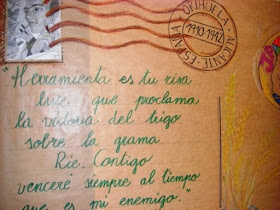 ORIHUELA - ALICANTE - ESPAÑA
1910-1942
"Herramienta es tu risa
luz que proclama
la victoria del trigo
sobre la grama.
Rie. Contigo
venceré siempre al tiempo
que es mi enemigo."